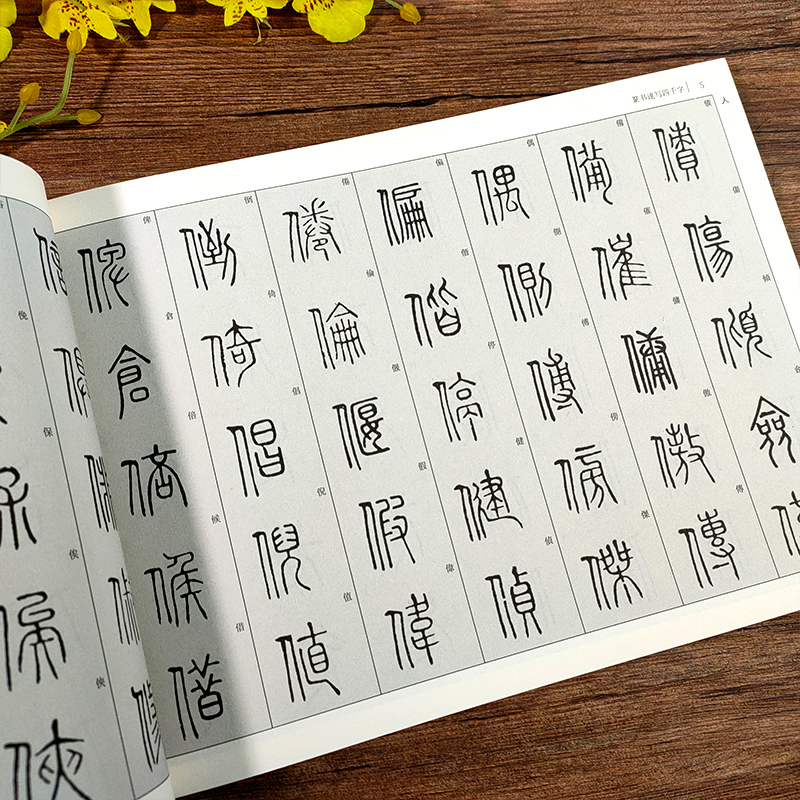 篆书速写四千字 5
人
俗
俛
保
俟
俠
俾 倉 倍 候 借
倒 倚 倡 倪 值
倦 倫 偃 假 偉
偏 偕 停 健 偵
偶 側 傅 傍 傑
備 催 傭 傲 傳
債 傷 傾 僉